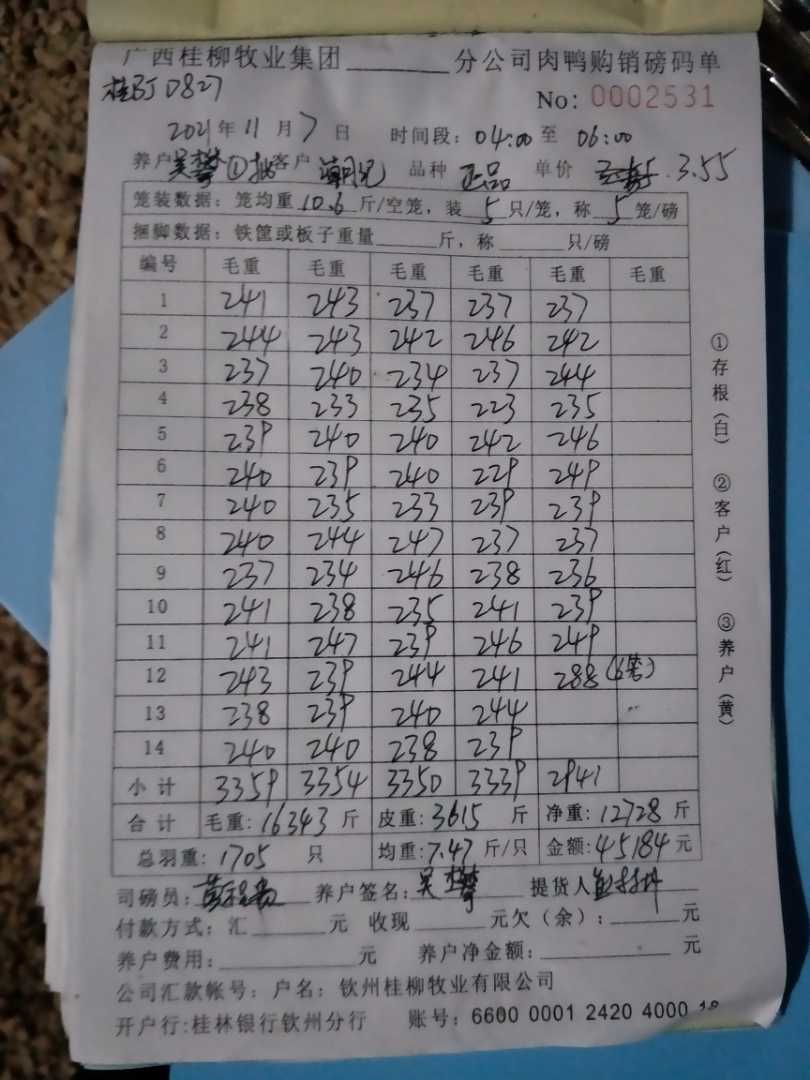 广西桂柳牧业集团______分公司肉鸭购销磅码单
桂BJ0827
No: 0002531
2021年11月7日 时间段: 04:00 至 06:00
养户 吴攀①批 客户 品种 正品 单价 3.55
笼装数据: 笼均重 10.6 斤/空笼, 装 5 只/笼, 称 5 笼/磅
捆脚数据: 铁筐或板子重量______斤, 称______只/磅
编号 毛重 毛重 毛重 毛重 毛重 毛重
1 241 243 237 237 237
2 244 243 242 246 242
3 237 240 234 237 244
4 238 233 235 223 235
5 239 240 240 242 246
6 240 239 240 229 249
7 240 235 233 239 239
8 240 244 247 237 237
9 237 234 246 238 236
10 241 238 235 241 239
11 241 247 239 246 249
12 243 239 244 241 288 (6笼)
13 238 239 240 244
14 240 240 238 239
小计 3359 3354 3350 3339 2941
合计 毛重: 16343 斤 皮重: 3615 斤 净重: 12728 斤
总羽重: 1705 只 均重: 7.47 斤/只 金额: 45184 元
司磅员: 养户签名: 吴攀 提货人
付款方式: 汇______元 收现______元欠(余): ______元
养户费用: ______元 养户净金额: ______元
公司汇款帐号: 户名: 钦州桂柳牧业有限公司
开户行: 桂林银行钦州分行 账号: 6600 0001 2420 4000
①存根(白) ②客户(红) ③养户(黄)